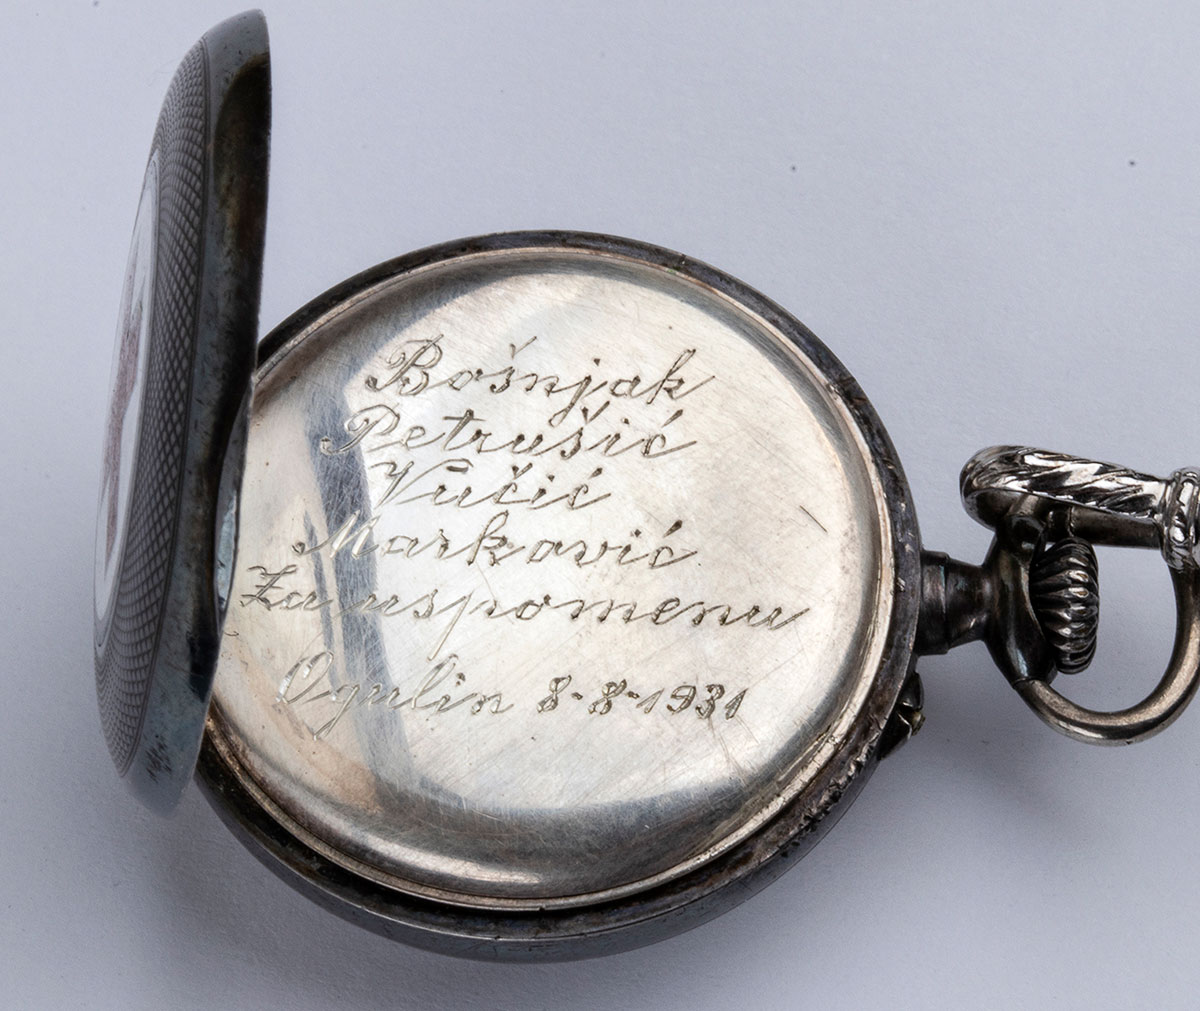 Bošnjak
Petrušić
Vučić
Marković
Za uspomenu
Ogulin 8-8-1931